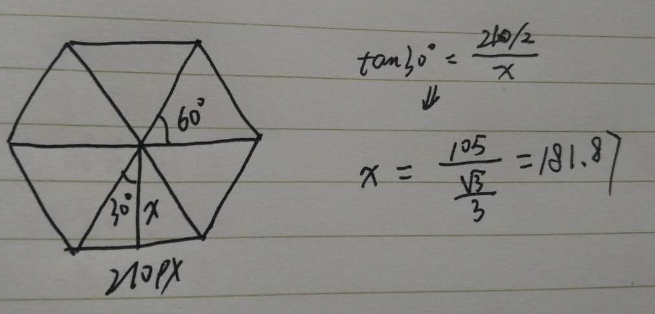 60°
30°
x
210px
tan30° = 210/2 / x
⇓
x = 105 / (√3 / 3) = 181.87